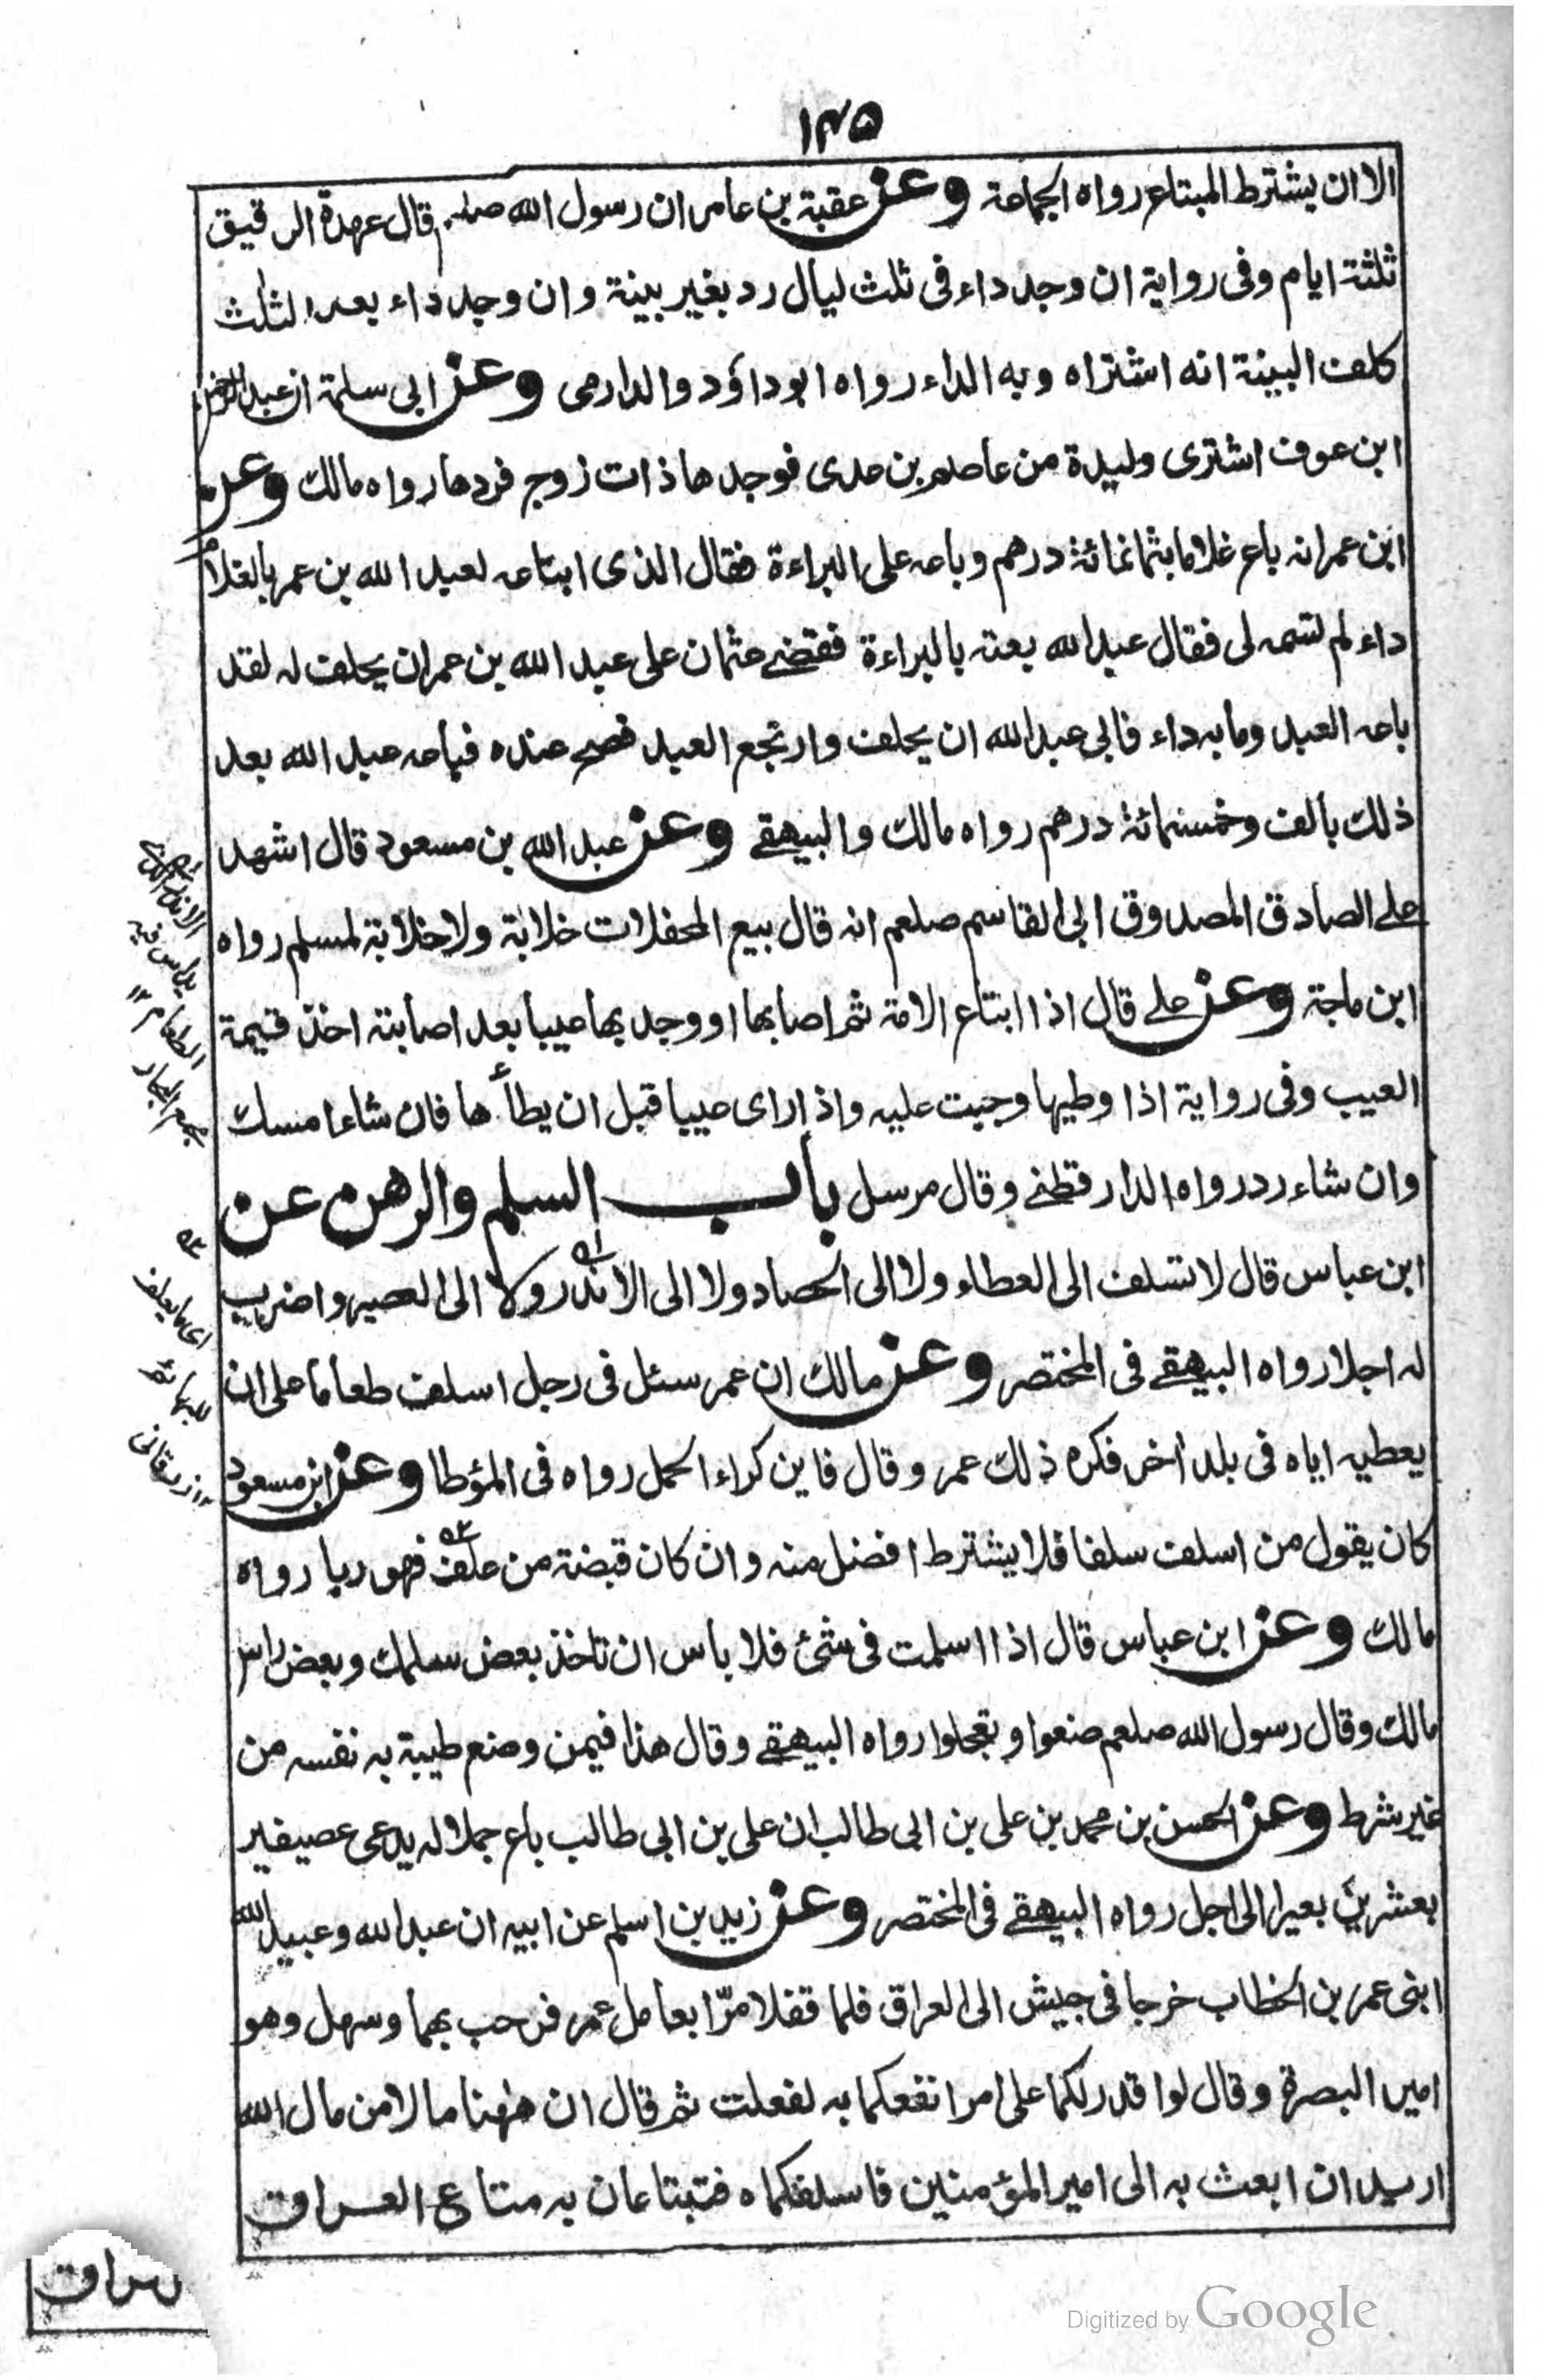 ١٣٥
الا ان يشترط المبتاع رواه الجماعة وعن عقبة بن عامر ان رسول الله صلعم قال عهدة الرقيق
ثلثة ايام وفى رواية ان وجد داء فى ثلث ليال رد بغير بينة وان وجد داء بعد الثلث
كلف البينة انه اشتراه وبه الداء رواه ابو داؤد والدارمى وعن ابى سلمة ان عبد الرحمن
ابن عوف اشترى وليدة من عاصم بن عدى فوجدها ذات زوج فردها رواه مالك وعن
ابن عمر انه باع غلاما بثمانمائة درهم وباعه على البراءة فقال الذى ابتاعه لعبد الله بن عمر بالغلام
داء لم تسمه لى فقال عبد الله بعته بالبراءة فقضے عثمان على عبد الله بن عمر ان يحلف له لقد
باعه العبد وما به داء فابى عبد الله ان يحلف وارتجع العبد فصح عنده فباعه عبد الله بعد
ذلك بالف وخمسمائة درهم رواه مالك والبيهقے وعن عبد الله بن مسعود قال اشهد
علے الصادق المصدوق ابى القاسم صلعم انه قال بيع المحفلات خلابة ولا خلابة لمسلم رواه
ابن ماجة وعن علے قال اذا ابتاع الامة ثم اصابها او وجد بها عيبا بعد اصابته اخذ قيمة
العيب وفى رواية اذا وطيها وجبت عليه واذا راى عيبا قبل ان يطأها فان شاء امسك
وان شاء رد رواه الدارقطنے وقال مرسل باب السلم والرهن عن
ابن عباس قال لا تسلف الى العطاء ولا الى الحصاد ولا الى الاندر ولا الى العصير واضرب
له اجلا رواه البيهقے فى المختصر وعن مالك ان عمر سئل فى رجل اسلف طعاما على ان
يعطيه اياه فى بلد اخر فكره ذلك عمر وقال فاين كراء الحمل رواه فى المؤطا وعن ابن مسعود
كان يقول من اسلف سلفا فلا يشترط افضل منه وان كان قبضة من علف فهو ربا رواه
مالك وعن ابن عباس قال اذا اسلمت فى شئ فلا باس ان تاخذ بعض سلمك وبعض راس
مالك وقال رسول الله صلعم ضعوا وتعجلوا رواه البيهقے وقال هذا فيمن وضع طيبة به نفسه من
غير شرط وعن الحسن بن محمد بن على بن ابى طالب ان على بن ابى طالب باع جملا له يدعى عصيفير
بعشرين بعيرا الى اجل رواه البيهقے فى المختصر وعن زيد بن اسلم عن ابيه ان عبد الله وعبيد الله
ابنى عمر بن الخطاب خرجا فى جيش الى العراق فلما قفلا مرّا بعامل عمر فرحب بهما وسهل وهو
امير البصرة وقال لو اقدر لكما على امر انفعكما به لفعلت ثم قال ان ههنا مالا من مال الله
اريد ان ابعث به الى امير المؤمنين فاسلفكماه فتبتاعان به متاع العراق
يداس فيه
الطعام ١٢
مجمع البحار
اى ما يعلف
للبهائم
١٢ زرقانى
Digitized by Google